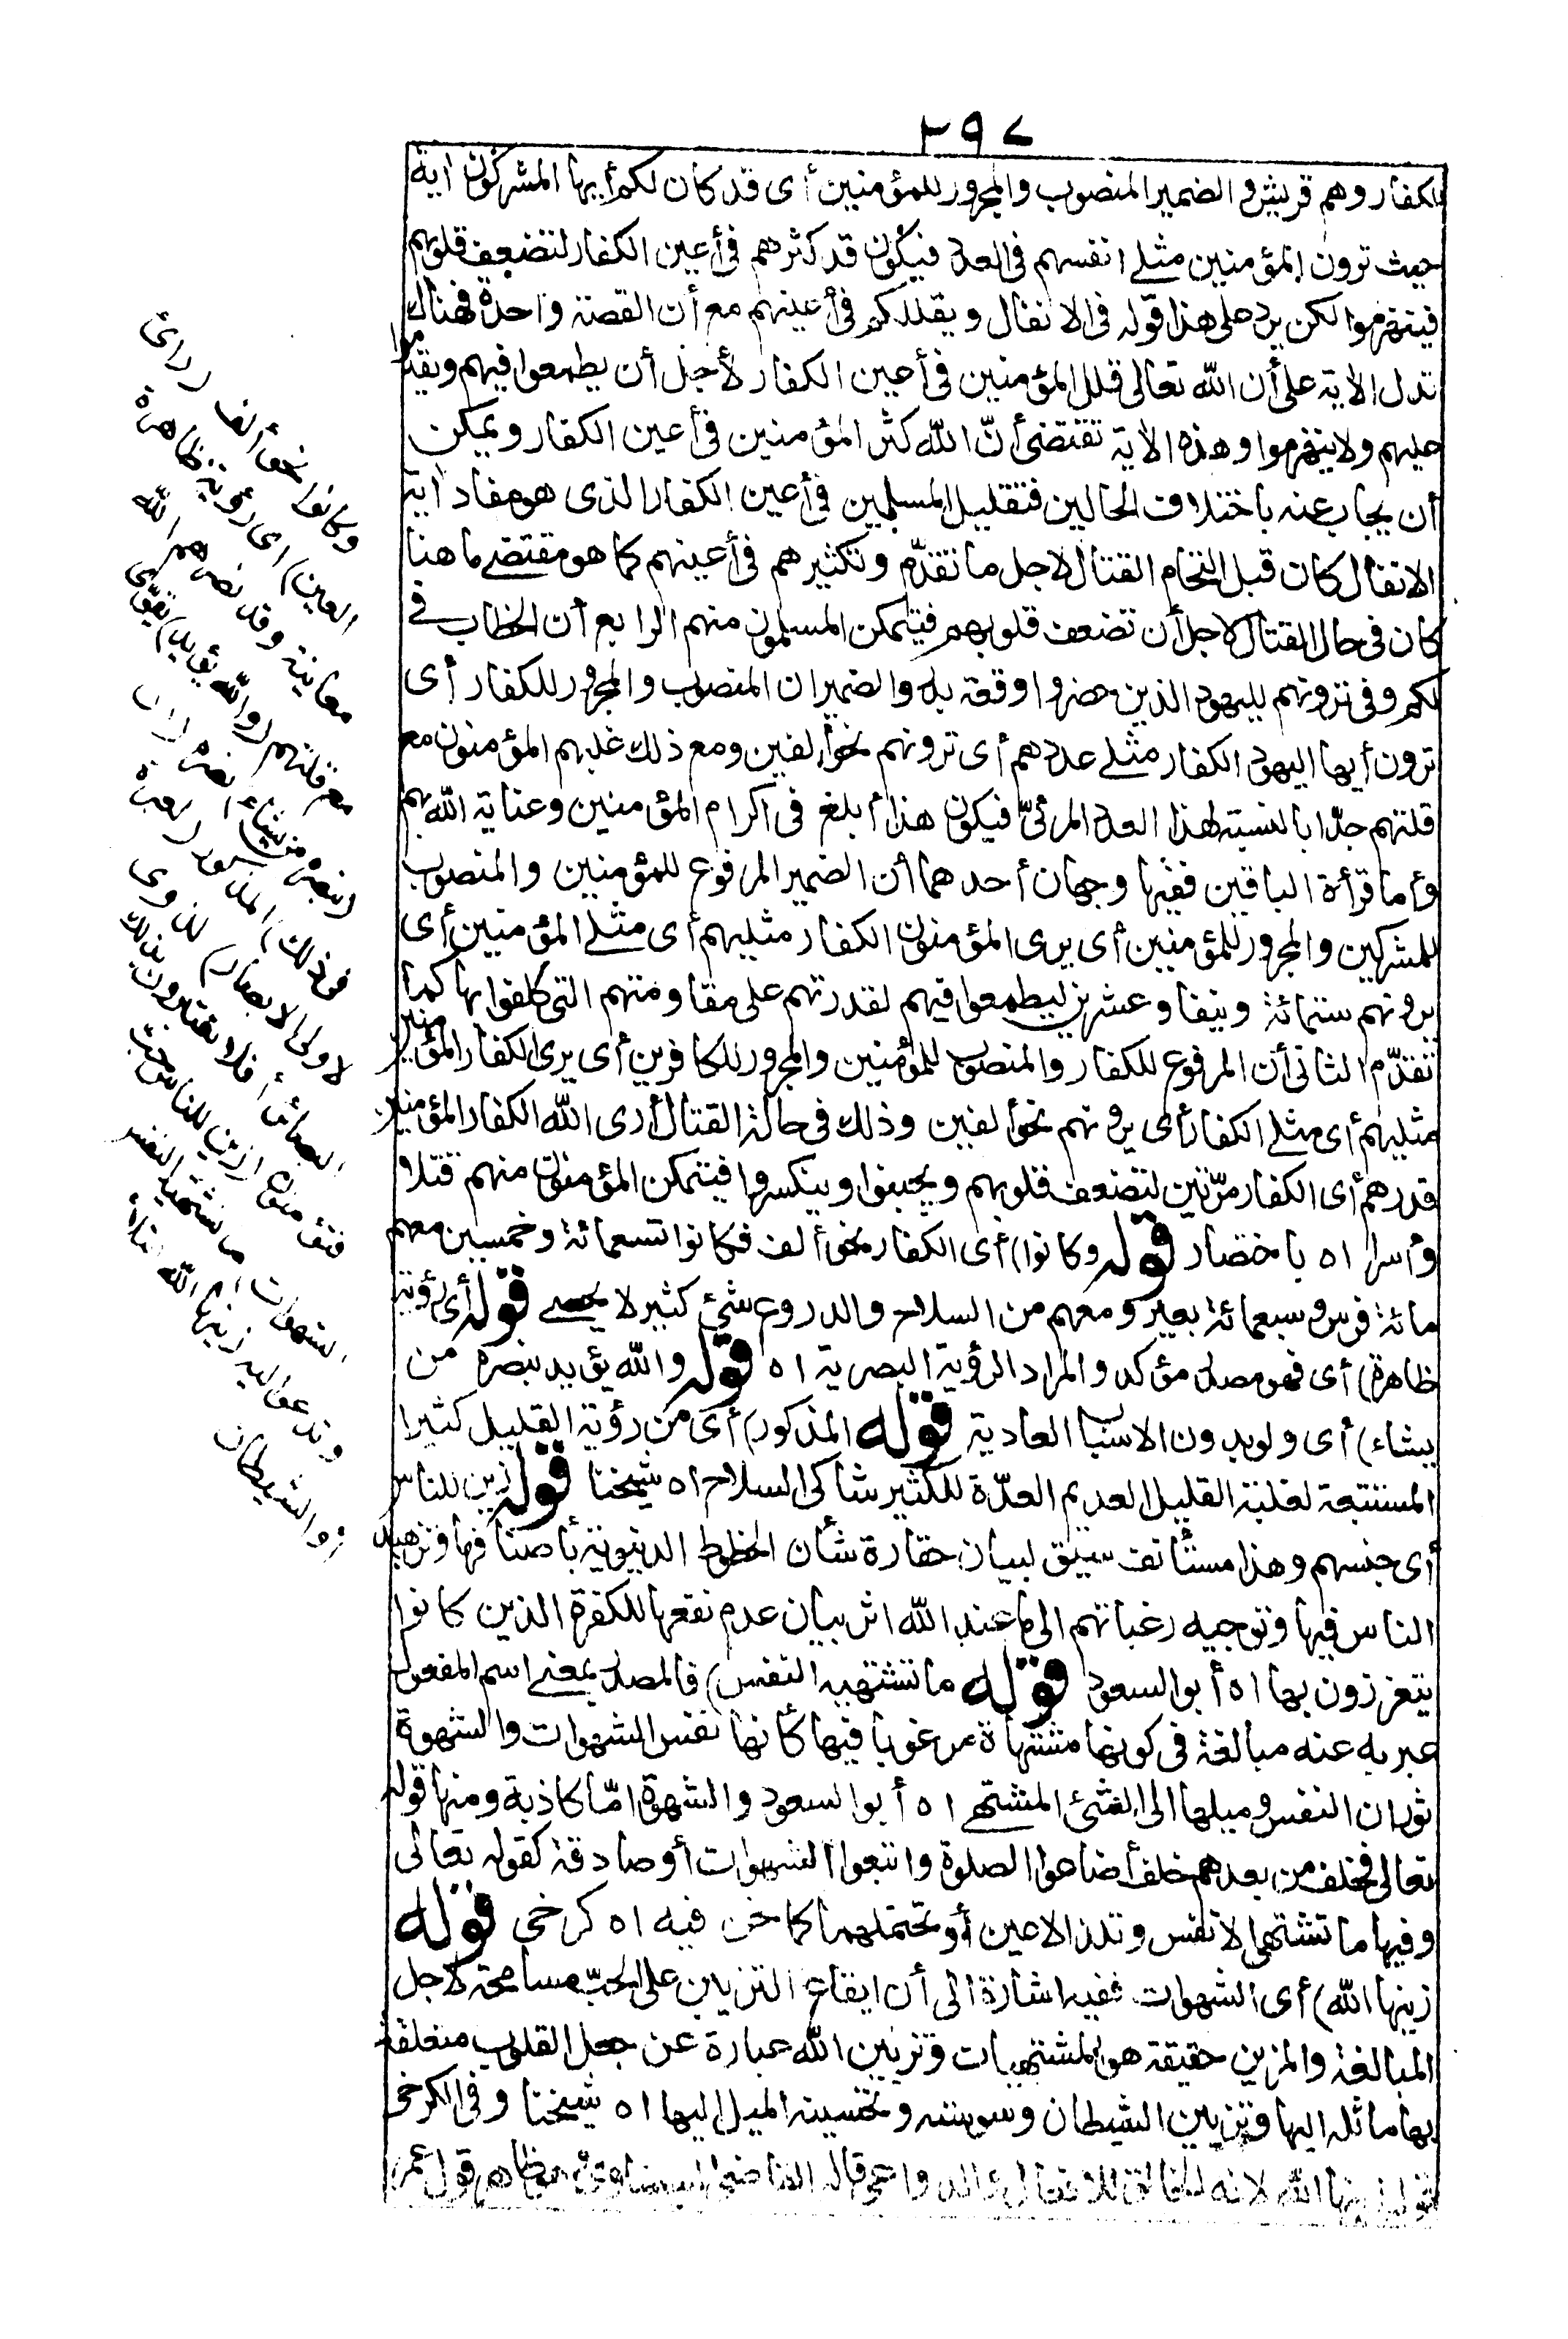 ٢٩٧
للكفار وهم قريش و الضمير المنصوب والمجرور للمؤمنين أى قد كان لكم أيها المشركون اية
حيث ترون المؤمنين مثلى انفسهم فى العدد فيكون قد كثرهم فى أعين الكفار لتضعف قلوبهم
فينهزموا لكن يرد على هذا قوله فى الانفال ويقللكم فى أعينهم مع أن القصة واحدة فهناك
تدل الاية على أن الله تعالى قلل المؤمنين فى أعين الكفار لأجل أن يطمعوا فيهم ويقدموا
عليهم ولا ينهزموا وهذه الاية تقتضى أنّ الله كثر المؤمنين فى أعين الكفار ويمكن
أن يجاب عنه باختلاف الحالين فتقليل المسلمين فى أعين الكفار الذى هو مفاد اية
الانفال كان قبل التحام القتال لاجل ما تقدّم وتكثيرهم فى أعينهم كما هو مقتضى ما هنا
كان فى حال القتال لاجل أن تضعف قلوبهم فيتمكن المسلمون منهم الرابع أن الخطاب فى
لكم وفى ترونهم لليهود الذين حضروا وقعة بدر والضميران المنصوب والمجرور للكفار أى
ترون أيها اليهود الكفار مثلى عددهم أى ترونهم نحو ألفين ومع ذلك غلبهم المؤمنون مع
قلتهم جدّا بالنسبة لهذا العدد المرئىّ فيكون هذا أبلغ فى اكرام المؤمنين وعناية الله بهم
وأما قرأة الباقين ففيها وجهان أحدهما أن الضمير المرفوع للمؤمنين والمنصوب
للمشركين والمجرور للمؤمنين أى يرى المؤمنون الكفار مثليهم أى مثلى المؤمنين أى
يرونهم ستمائة ونيفا وعشرين ليطمعوا فيهم لقدرتهم على مقاومتهم التى كلفوا بها كما
تقدّم الثانى أن المرفوع للكفار والمنصوب للمؤمنين والمجرور للكافرين أى يرى الكفار المؤمنين
مثليهم أى مثلى الكفار أى يرونهم نحو ألفين وذلك فى حالة القتال أرى الله الكفار المؤمنين
قدرهم أى الكفار مرّتين لتضعف قلوبهم ويجبنوا وينكسروا فيتمكن المؤمنون منهم قتلا
وأسرا اه باختصار قوله وكانوا) أى الكفار نحو ألف فكانوا تسعمائة وخمسين معهم
مائة فرس وسبعمائة بعير ومعهم من السلاح والدروع شئ كثير لا يحصى قوله أى رؤية
ظاهرة) أى فهو مصدر مؤكد والمراد الرؤية البصرية اه قوله والله يؤيد بنصره من
يشاء) أى ولو بدون الاسباب العادية قوله المذكور) أى من رؤية القليل كثيرا
المستتبعة لغلبة القليل العديم العدّة للكثير شاكى السلاح اه شيخنا قوله زين للناس
أى جنسهم وهذا مستأنف سيق لبيان حقارة شأن الحظوظ الدنيوية بأصنافها وتزهيد
الناس فيها وتوجيه رغباتهم الى ما عند الله اثر بيان عدم نفعها للكفرة الذين كانوا
يتعززون بها اه أبو السعود قوله ما تشتهيه النفس) فالمصدر بمعنى اسم المفعول
عبر به عنه مبالغة فى كونها مشتهاة مرغوبا فيها كأنها نفس الشهوات والشهوة
ثوران النفس وميلها الى الشئ المشتهى اه أبو السعود والشهوة امّا كاذبة ومنها قوله
تعالى فخلف من بعدهم خلف أضاعوا الصلوة واتبعوا الشهوات أو صادقة كقوله تعالى
وفيها ما تشتهى الانفس وتلذ الاعين أو تحتملهما كما نحن فيه اه كرخى قوله
زينها الله) أى الشهوات ففيه اشارة الى أن ايقاع التزيين على الحبّ مسامحة لاجل
المبالغة والمزين حقيقة هو المشتهيات وتزيين الله عبارة عن جعل القلوب متعلقة
بها مائلة اليها وتزيين الشيطان وسوسته وتحسينه الميل اليها اه شيخنا وفى الكرخى
قوله زينها الله لانه الخالق للافعال والدواعى قاله القاضى البيضاوى ظاهر قول عمر
وكانوا نحو ألف (رأى
العين) اى رؤية ظاهرة
معاينة وقد نصرهم الله
مع قلتهم (والله يؤيد) يقوّى
(بنصره من يشاء) نصره (ان
فى ذلك) المذكور (لعبرة
لاولى الابصار) لذوى
البصائر أفلا تعتبرون بذلك
فتؤمنون (زين للناس حبّ
الشهوات) ما تشتهيه النفس
وتدعو اليه زينها الله ابتلاء
أو الشيطان